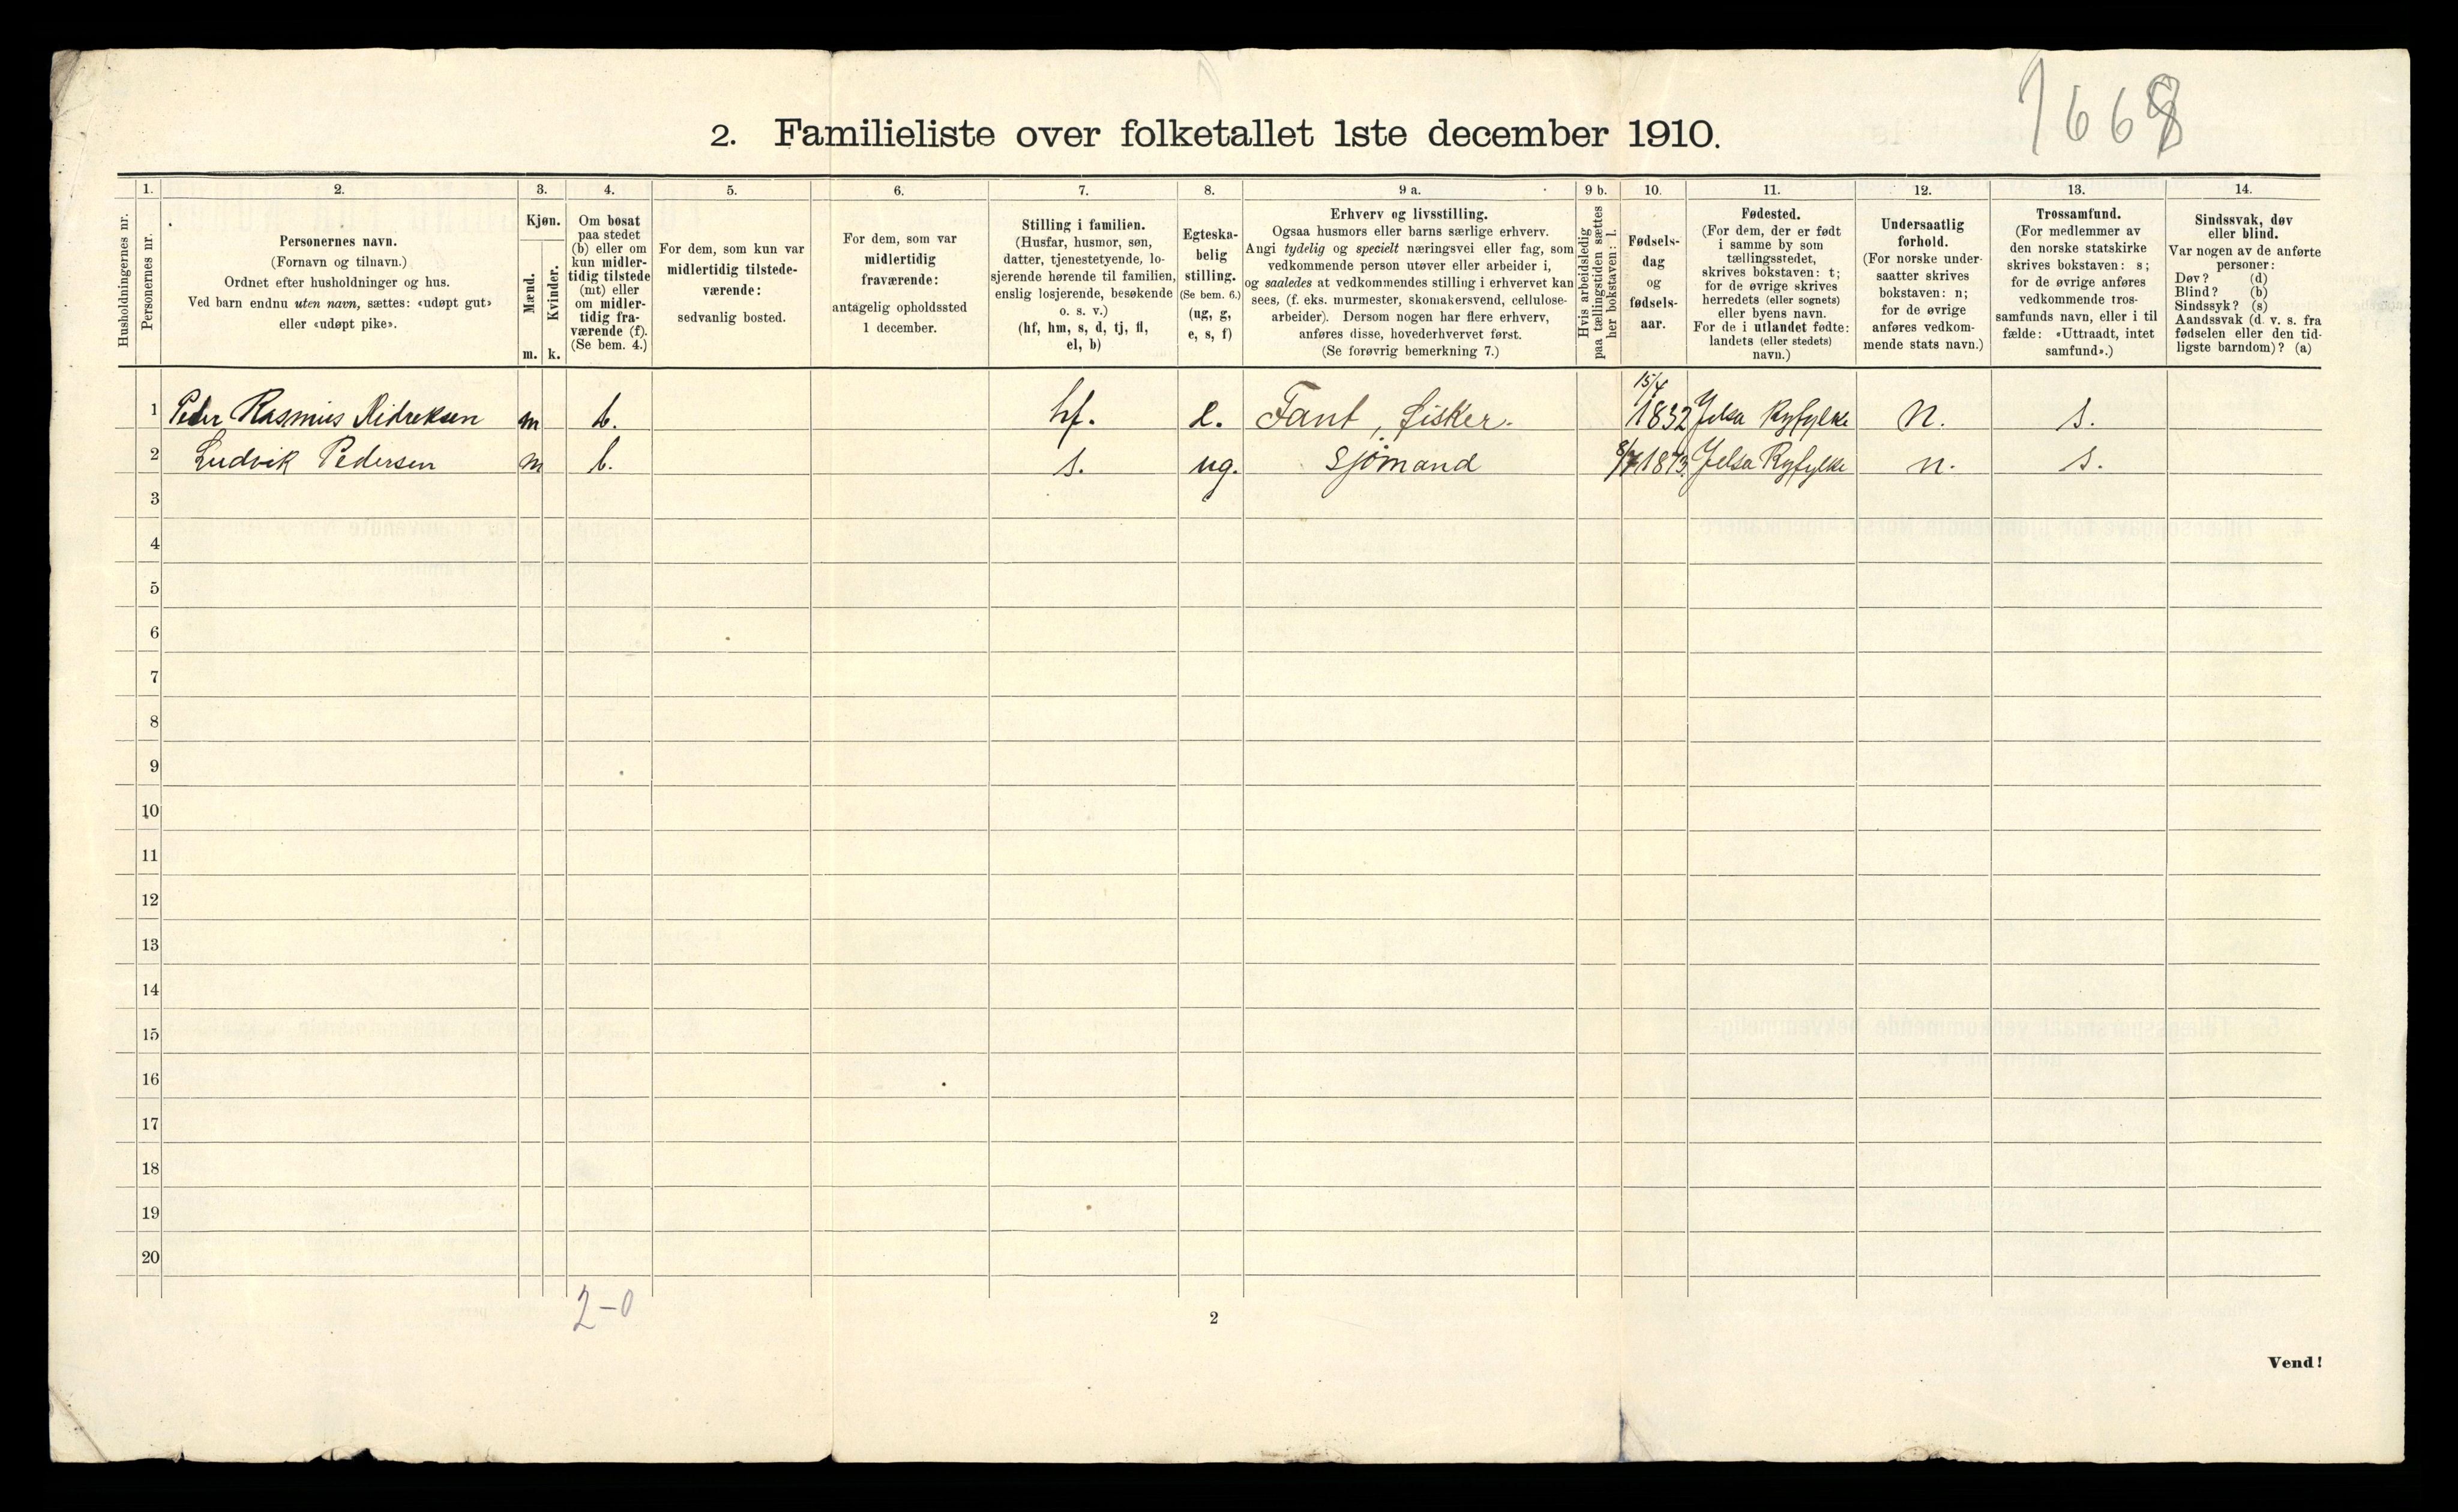 1668
2. Familieliste over folketallet 1ste december 1910.
Husholdningernes nr.
1.
Personernes nr.
2.
Personernes navn.
(Fornavn og tilnavn.)
Ordnet efter husholdninger og hus.
Ved barn endnu uten navn, sættes: «udøpt gut»
eller «udøpt pike».
3.
Kjøn.
Mænd.
Kvinder.
m. k.
4.
Om bosat
paa stedet
(b) eller om
kun midler-
tidig tilstede
(mt) eller
om midler-
tidig fra-
værende (f).
(Se bem. 4.)
5.
For dem, som kun var
midlertidig tilstede-
værende:
sedvanlig bosted.
6.
For dem, som var
midlertidig
fraværende:
antagelig opholdssted
1 december.
7.
Stilling i familien.
(Husfar, husmor, søn,
datter, tjenestetyende, lo-
sjerende hørende til familien,
enslig losjerende, besøkende
o. s. v.)
(hf, hm, s, d, tj, fl,
el, b)
8.
Egteska-
belig
stilling.
(Se bem. 6.)
(ug, g,
e, s, f)
9 a.
Erhverv og livsstilling.
Ogsaa husmors eller barns særlige erhverv.
Angi tydelig og specielt næringsvei eller fag, som
vedkommende person utøver eller arbeider i,
og saaledes at vedkommendes stilling i erhvervet kan
sees, (f. eks. murmester, skomakersvend, cellulose-
arbeider). Dersom nogen har flere erhverv,
anføres disse, hovederhvervet først.
(Se forøvrig bemerkning 7.)
9 b.
Hvis arbeidsledig
paa tællingstiden sættes
her bokstaven: l.
10.
Fødsels-
dag
og
fødsels-
aar.
11.
Fødested.
(For dem, der er født
i samme by som
tællingsstedet,
skrives bokstaven: t;
for de øvrige skrives
herredets (eller sognets)
eller byens navn.
For de i utlandet fødte:
landets (eller stedets)
navn.)
12.
Undersaatlig
forhold.
(For norske under-
saatter skrives
bokstaven: n;
for de øvrige
anføres vedkom-
mende stats navn.)
13.
Trossamfund.
(For medlemmer av
den norske statskirke
skrives bokstaven: s;
for de øvrige anføres
vedkommende tros-
samfunds navn, eller i til
fælde: «Uttraadt, intet
samfund».)
14.
Sindssvak, døv
eller blind.
Var nogen av de anførte
personer:
Døv? (d)
Blind? (b)
Sindssyk? (s)
Aandssvak (d. v. s. fra
fødselen eller den tid-
ligste barndom)? (a)
1 Peder Rasmus Didreksen m b. hf. e. Fant, fisker. 15/4 1832 Jelsa Ryfylke n. s.
2 Ludvik Pedersen m b. s. ug. Sjömand 1873 Jelsa Ryfylke n. s.
3
4
5
6
7
8
9
10
11
12
13
14
15
16
17
18
19
20
2-0
2
Vend!